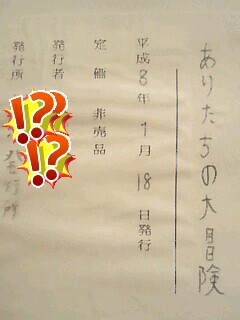 ありたちの大冒険
平成8年9月18日発行
定価 非売品
発行者
発行所
!?
!?
発行所